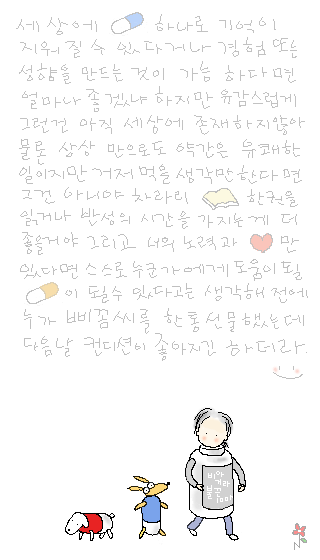 세상에 하나로 기억이
지워 질 수 있다거나 경험 또는
성향을 만드는 것이 가능 하다면
얼마나 좋겠냐 하지만 유감스럽게
그런건 아직 세상에 존재하지않아
물론 상상 만으로도 약간은 유쾌한
일이지만 거저 먹을 생각만한다면
그건 아니야 차라리 한권을
읽거나 반성의 시간을 가지는게 더
좋을거야 그리고 너의 노력과 만
있다면 스스로 누군가에게 도움이 될
이 될수 있다고는 생각해 전에
누가 삐꼼씨를 한통 선물했는데
다음날 컨디션이 좋아지긴 하더라.